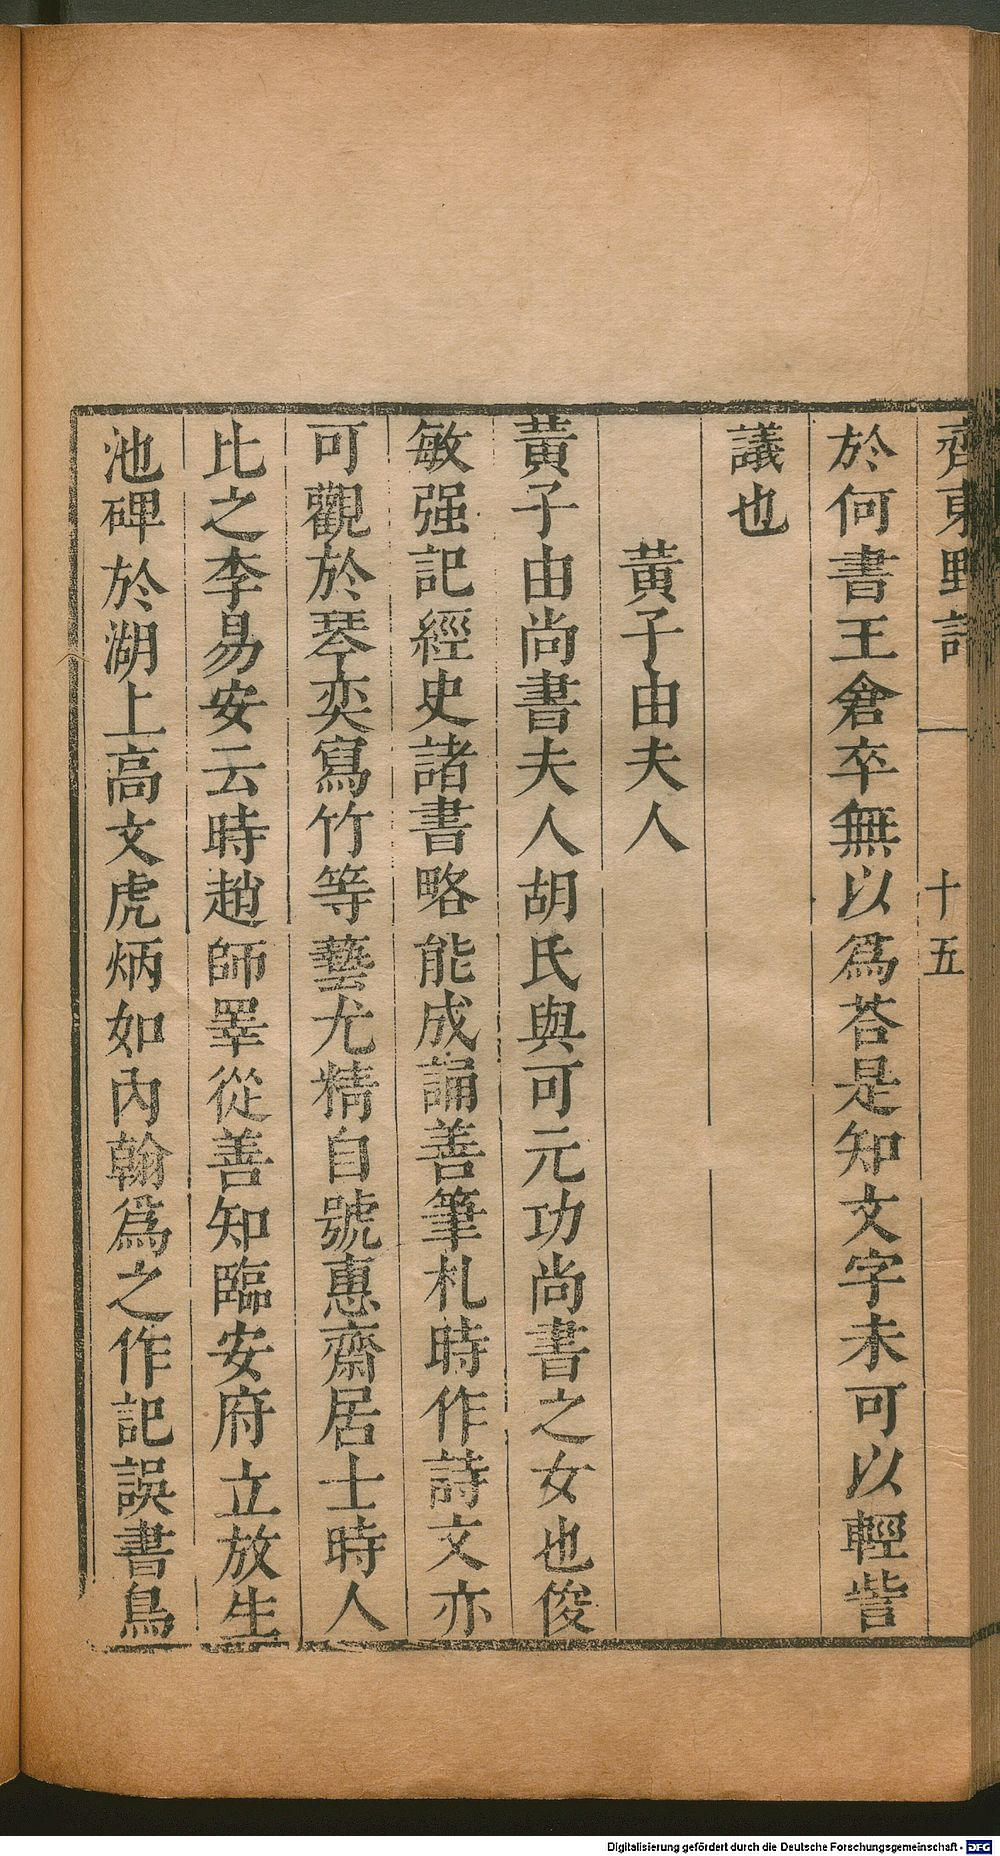 齊東野語
十五
於何書王倉卒無以爲荅是知文字未可以輕訾
議也
黃子由夫人
黃子由尚書夫人胡氏與可元功尚書之女也俊
敏强記經史諸書略能成誦善筆札時作詩文亦
可觀於琴奕寫竹等藝尤精自號惠齋居士時人
比之李易安云時趙師睪從善知臨安府立放生
池碑於湖上高文虎炳如內翰爲之作記誤書鳥
Digitalisierung gefördert durch die Deutsche Forschungsgemeinschaft - DFG